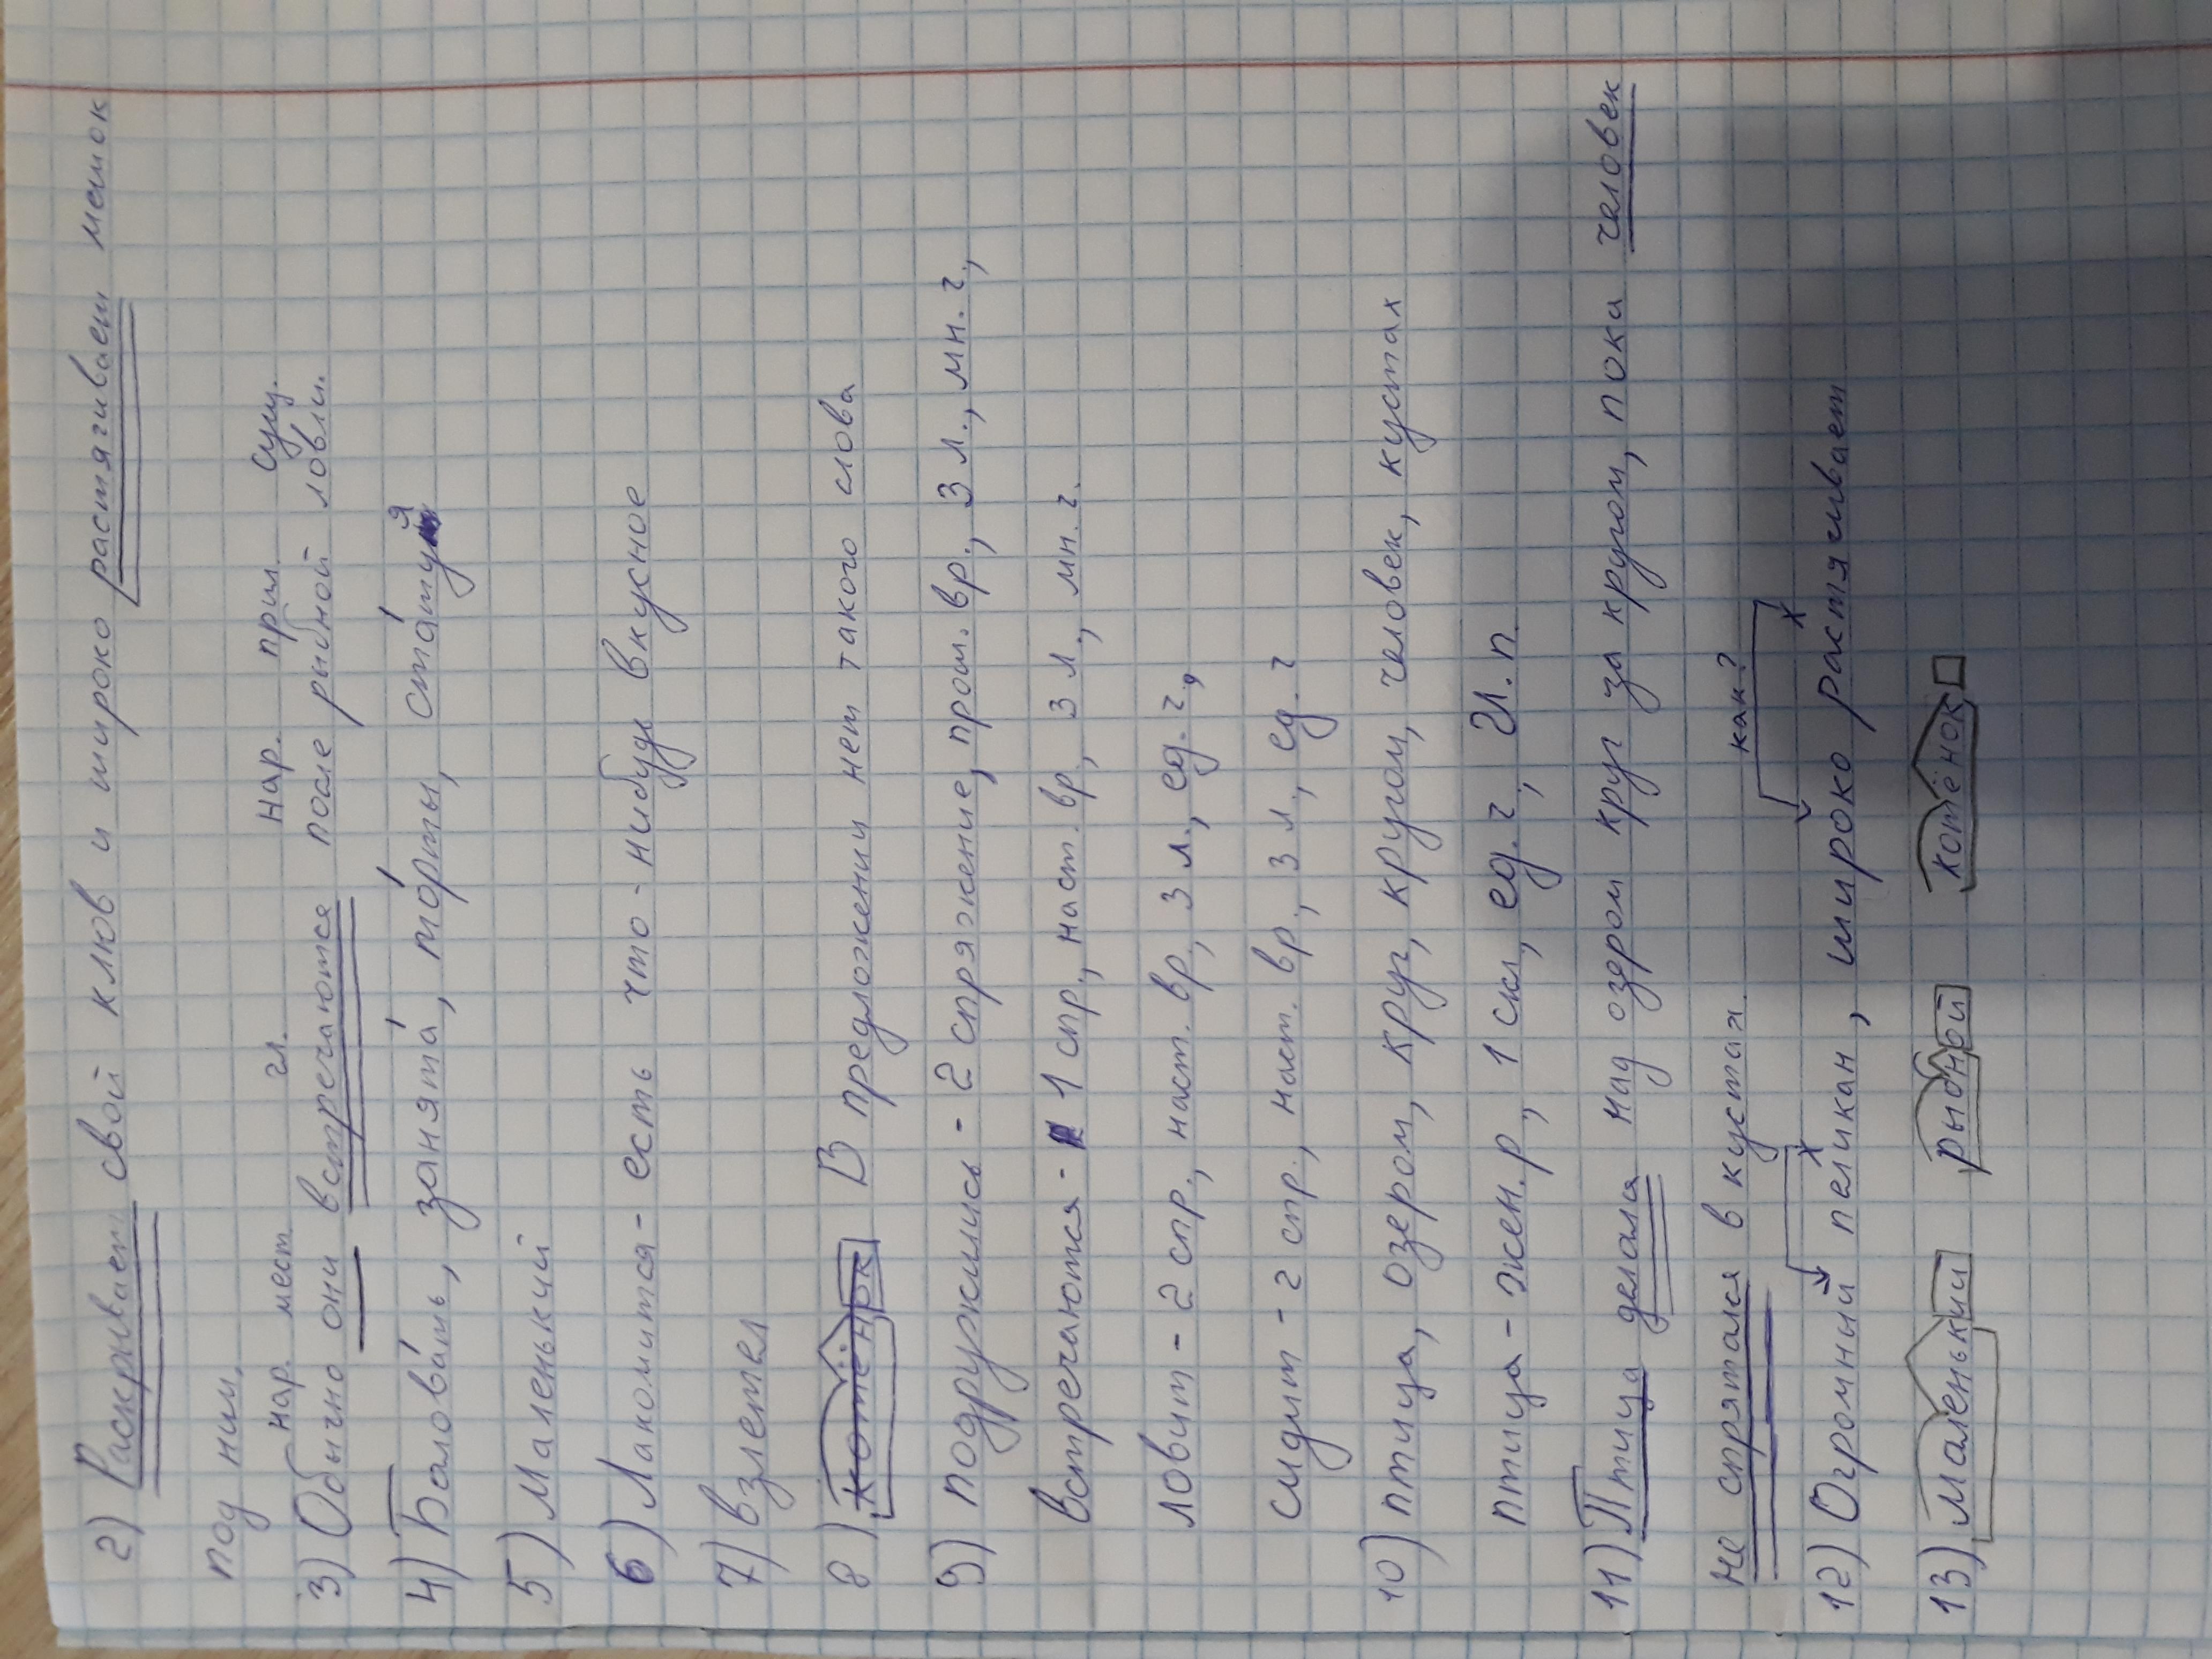 2) Раскрывает свой клюв и широко растягивает мешок
под ним.
нар. мест. гл. нар. прил. сущ.
3) Обычно они встречаются после рыбной ловли.
4) Балова́ть, занята́, то́рты, ста́туя
5) Маленький
6) Лакомится - есть что-нибудь вкусное
7) взлетел
8) котёнок В предложении нет такого слова
9) подружились - 2 спряжение, прош. вр., 3 л., мн. ч.,
встречаются - 1 спр., наст. вр., 3 л., мн. ч.
ловит - 2 спр., наст. вр., 3 л., ед. ч.,
сидит - 2 спр., наст. вр., 3 л., ед. ч
10) птица, озером, круг, кругом, человек, кустах
птица - жен. р, 1 скл, ед. ч, И. п.
11) Птица делала над озером круг за кругом, пока человек
не спрятался в кустах.
как?
12) Огромный пеликан, широко растягивает
13) маленький рыбной котёнок